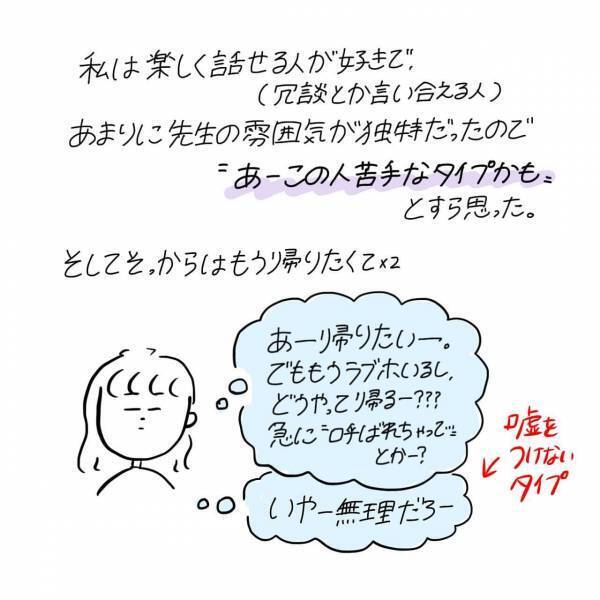 私は楽しく話せる人が好きで、
(冗談とか言い合える人)
あまりに先生の雰囲気が独特だったので
"あーこの人苦手なタイプかも"
とすら思った。
そしてそっからはもう帰りたくて×2
あーり帰りたいー。
でももうラブホいるし、
どうやって帰るー???
急に"呼ばれちゃって"
とかー?
いやー無理だろー
嘘を
つけない
タイプ